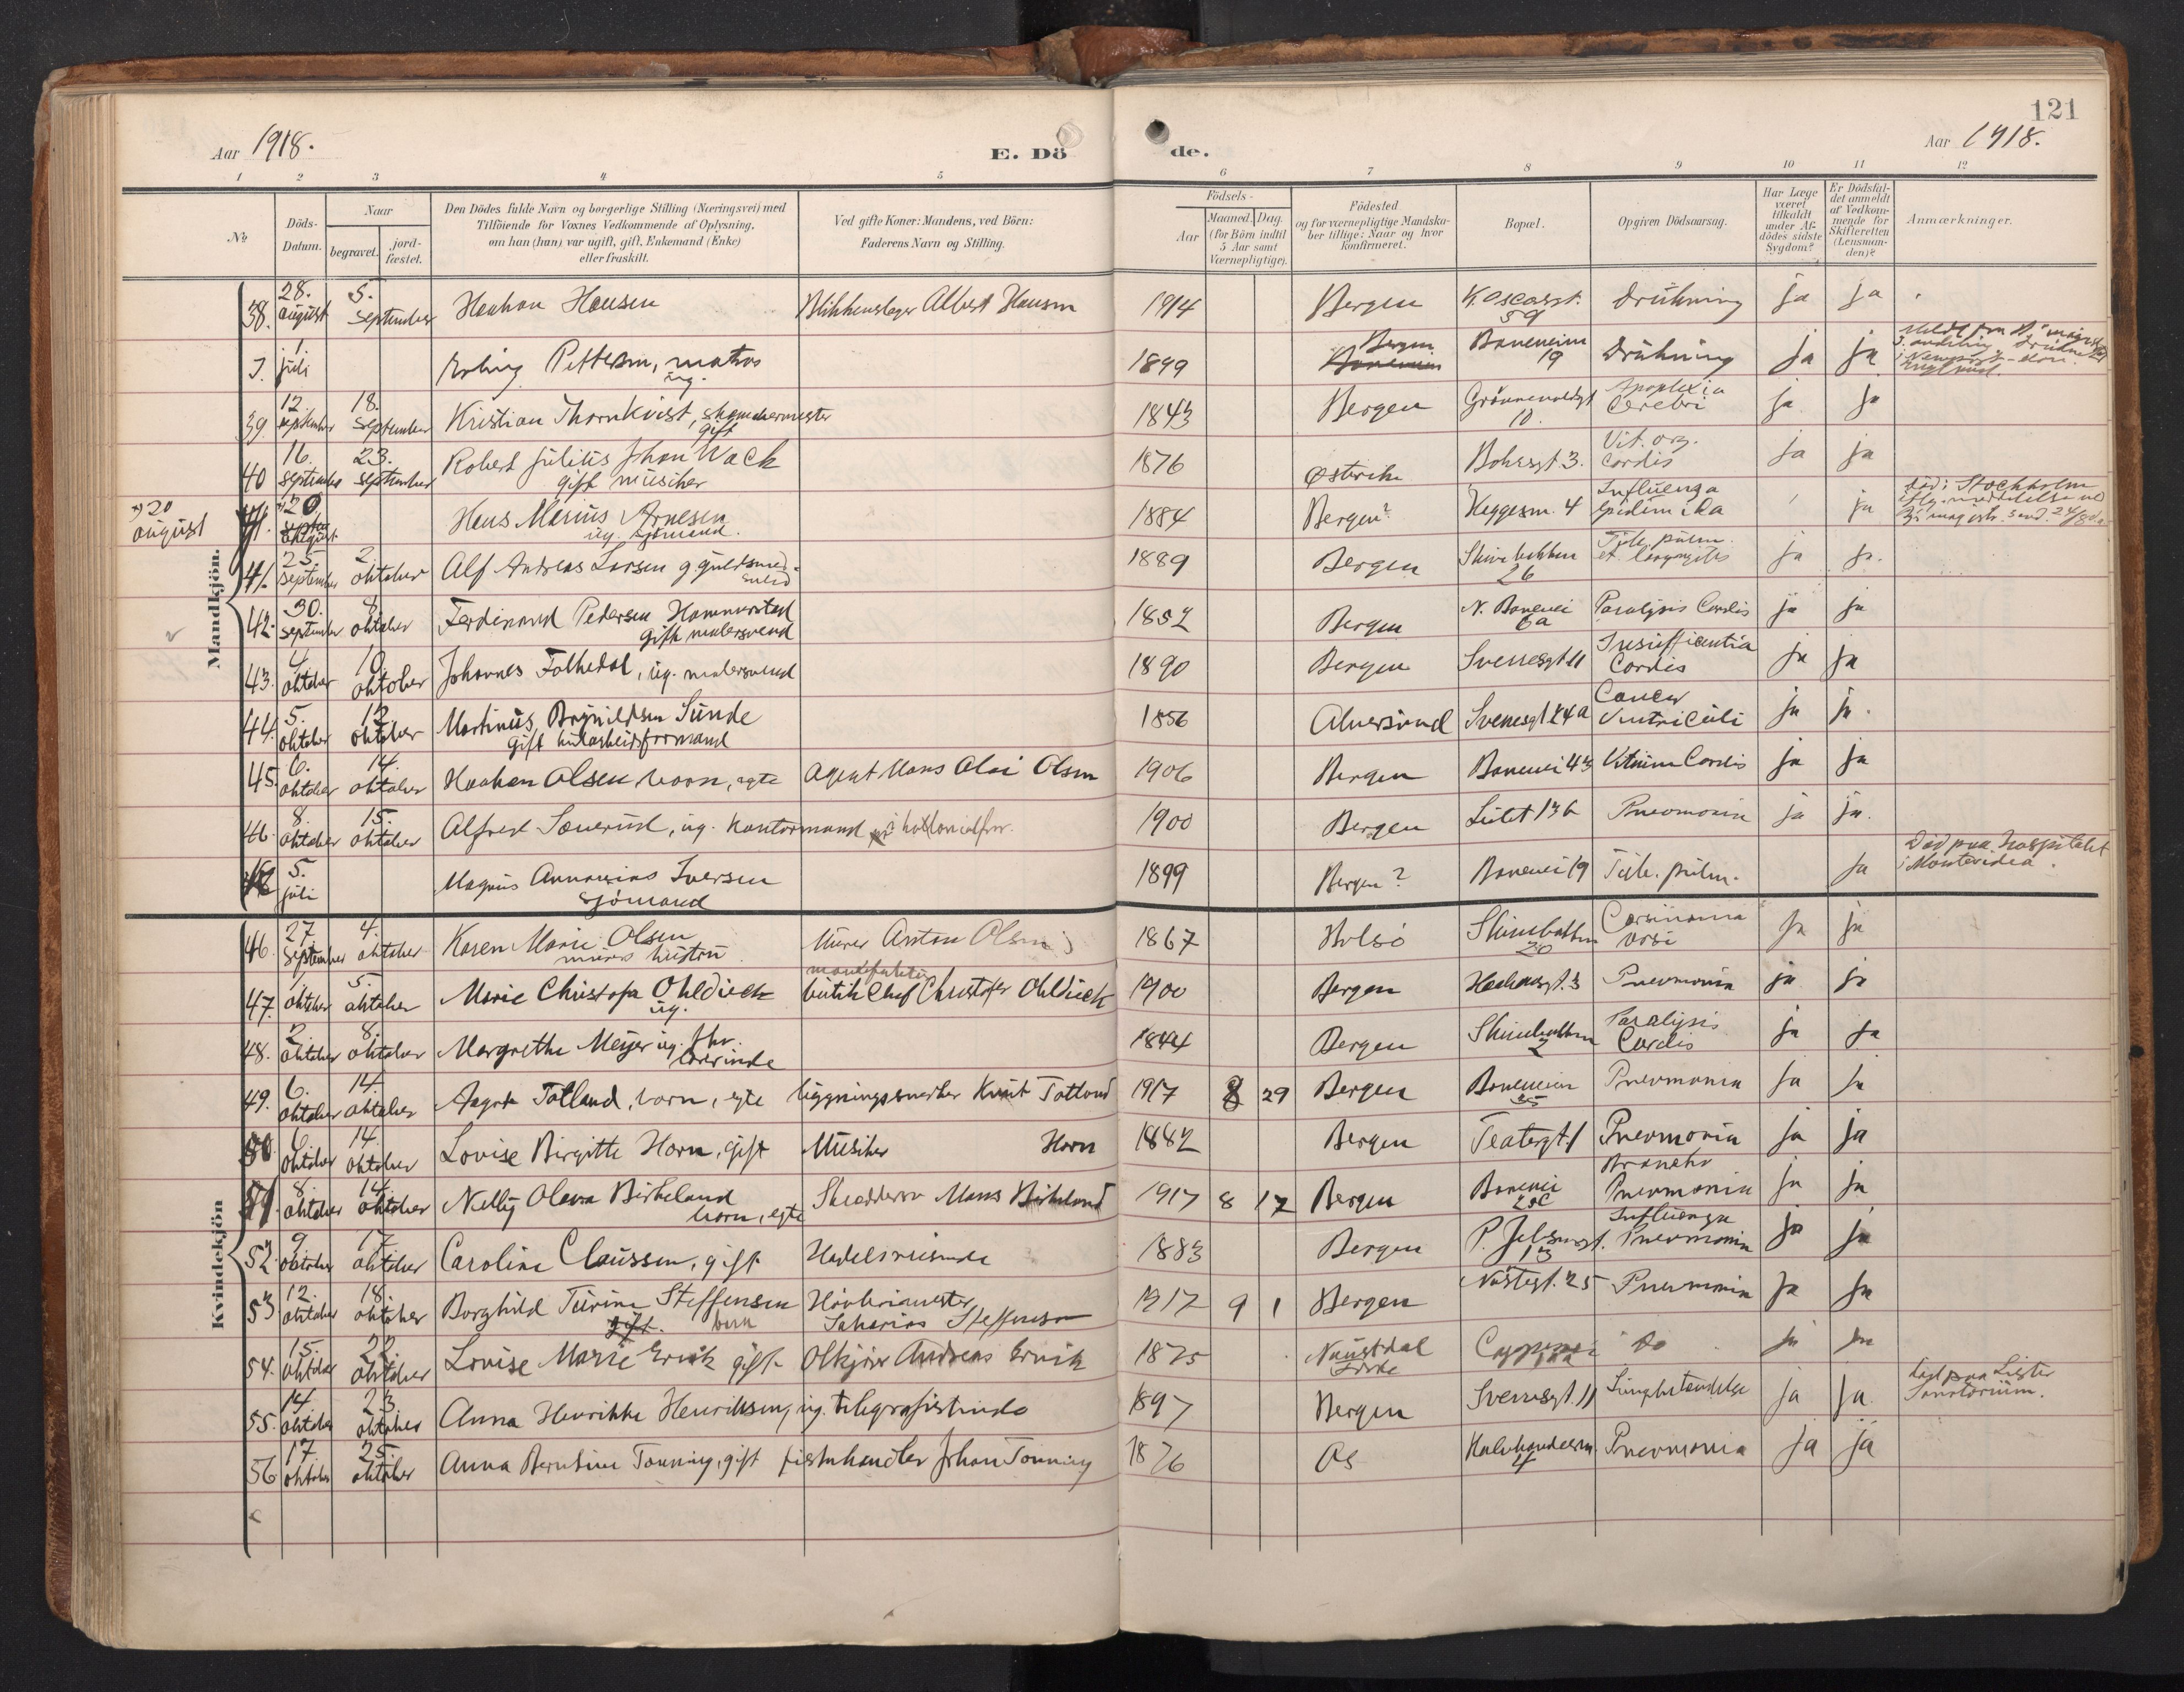 121
Aar 1918.
E. Dö de.
Aar 1918.
1 2 3 4 5 6 7 8 9 10 11 12
No
Döds-Datum.
Naar
begravet.
jord-fæstet.
Den Dödes fulde Navn og borgerlige Stilling (Næringsvei) med
Tilföiende for Voxnes Vedkommende af Oplysning,
om han (hun) var ugift, gift, Enkemand (Enke)
eller fraskilt.
Ved gifte Koner: Mandens, ved Börn:
Faderens Navn og Stilling.
Födsels-
Aar
Maaned. Dag.
(for Börn indtil
5 Aar samt
Værnepligtige).
Födested
og for værnepligtige Mandska-
ber tillige: Naar og hvor
konfirmeret.
Bopæl.
Opgiven Dödsaarsag.
Har Læge
været
tilkaldt
under Af-
dödes sidste
Sygdom?
Er Dödsfal-
det anmeldt
af Vedkom-
mende for
Skifteretten
(Lensman-
den)?
Anmærkninger.
Mandkjön.
38. 28. august 5. september Haakon Hansen Blikkenslager Albert Hansen 1914 Bergen K. Oscarsgt. 59 Drukning ja ja
1 juli Erling Pettersen, matros ug. 1899 Bergen Baneveien 19 Drukning ja ja
39. 12. september 18. september Kristian Thornkvist, skomakermester gift 1843 Bergen 10. Apoplexia Cerebri ja ja
40 16. september 23. september Robert Julius Johan Wack gift musiker 1876 Østerike Bohrsgt 3. Vit. org. Cordis ja ja
20 august 20 Hans Marius Arnesen ug. sjømand. 1884 Bergen? Heggesm. 4 Influenza Epidemika ja død i Stockholm
41. 25. september 2. oktober Alf Andreas Larsen g. guldsmedsvend 1889 Bergen Skivebakken 26 Tub. pulm. et laryngitis ja ja.
42. 30. september 8. oktober Ferdinand Pedersen Hammerstad gift malersvend 1852 Bergen N. Banevei 6a Paralysis Cordis ja ja
43. 4. oktober 10. oktober Johannes Folkedal, ug. malersvend 1890 Bergen Sverresgt 11 Insufficientia Cordis ja ja
44. 5. oktober 12. oktober Martinus Brynildsen Sunde gift 1856 Alversund Sverresgt 24a Cancer Ventriculi ja ja.
45. 6. oktober 14. oktober Haakon Olsen, barn, egte Agent Hans Olai Olsen 1906 Bergen Banevei 43 Vitium Cordis ja ja
46. 8. oktober 15. oktober Alfred Sønerud, ug. kontormand i kolonialforr. 1900 Bergen Lulet 13b Pneomonia ja ja.
5. juli Magnus Annanias Iversen sjømand 1899 Bergen? Banevei 19 Tub. pulm. ja Død paa hospitalet i Montevideo.
Kvindekjön
46. 27. september 4. oktober Karen Marie Olsen murers hustru Murer Anton Olsen 1867 Holsö Skivebakken 20 Carsinoma ja ja
47. 1 oktober 5. oktober Marie Christofa Ohldieck ug. butik Chef Christofer Ohldieck 1900 Bergen Haakonsgt. 3 Pneumonia ja ja
48. 2. oktober 8. oktober Margrethe Meyer ug. fhv. lærerinde 1844 Bergen Skivebakken 2 Paralysis Cordis ja ja
49. 6. oktober 14. oktober Aagot Totland, barn, egte bygningssnedker Knut Totland 1917 8 29 Bergen Baneveien 35 Pneomonia ja ja
50. 6. oktober 14. oktober Lovise Birgitte Horn, gift Musiker Horn 1882 Bergen Teatergt. 1 Pneomonia ja ja
51. 8. oktober 14. oktober Nelly Olava Birkeland barn, egte Skreddersv. Mons Birkeland 1917 8 17 Bergen Banevei 23c Broncho Pneumonia ja ja
52. 9. oktober 17. oktober Caroline Claussen, gift 1883 Bergen P. Jebsensgt. 13 Influenza Pneomonia ja ja
53 12. oktober 18. oktober Borghild Turine Steffensen barn Sakarias Steffensen 1917 9 1 Bergen Nøstegt. 25 Pneumonia ja ja
54. 15. oktober 22. oktober Lovise Marie Ervik gift Ølkjører Andreas Ervik 1875 Naustdal Førde do ja ja
55. 14 oktober 23. oktober Anna Henrikke Henriksen, ug. telegrafistinde 1897 Bergen Sverresgt. 11 Lungebetendelse ja ja. død paa Lyster Sanatorium.
56 17 oktober 25. oktober Anna Berntine Tonning, gift fiskehandler Johan Tonning 1876 Os 4 Pneomonia ja ja